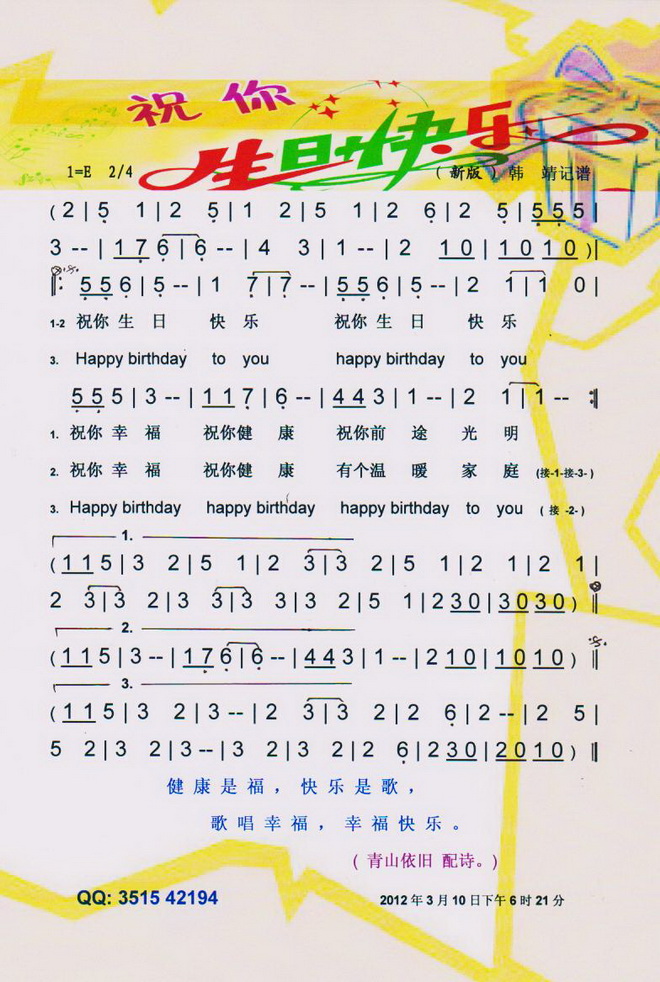 祝你
生日快乐
1=E 2/4 (新版) 韩 靖记谱
( 2 | 5 1 | 2 5 | 1 2 | 5 1 | 2 6 | 2 5 | 5 5 5 |
3 - - | 1 7 6 | 6 - - | 4 3 | 1 - - | 2 1 0 | 1 0 1 0 ) |
‖: 5 5 6 | 5 - - | 1 7 | 7 - - | 5 5 6 | 5 - - | 2 1 | 1 0 |
1-2 祝你 生 日 快 乐 祝你 生 日 快 乐
3. Happy birthday to you happy birthday to you
5 5 5 | 3 - - | 1 1 7 | 6 - - | 4 4 3 | 1 - - | 2 1 | 1 - - :‖
1. 祝你 幸 福 祝你健 康 祝你前 途 光 明
2. 祝你 幸 福 祝你健 康 有个温 暖 家 庭 (接-1-接-3-)
3. Happy birthday happy birthday happy birthday to you (接 -2-)
1.
( 1 1 5 | 3 2 | 5 1 | 2 3 | 3 2 | 5 1 | 2 1 | 2 1 |
2 3 | 3 2 | 3 2 | 3 3 | 3 2 | 5 1 | 2 3 0 | 3 0 3 0 ) ‖
2.
( 1 1 5 | 3 - - | 1 7 6 | 6 - - | 4 4 3 | 1 - - | 2 1 0 | 1 0 1 0 ) ‖
3.
( 1 1 5 | 3 2 | 3 - - | 2 3 | 3 2 | 2 6 | 2 - - | 2 5 |
5 2 | 3 2 | 3 - - | 3 2 | 3 2 | 2 6 | 2 3 0 | 2 0 1 0 ) ‖
健康是福，快乐是歌，
歌唱幸福，幸福快乐。
( 青山依旧 配诗。)
QQ: 3515 42194 2012年3月10日下午6时21分